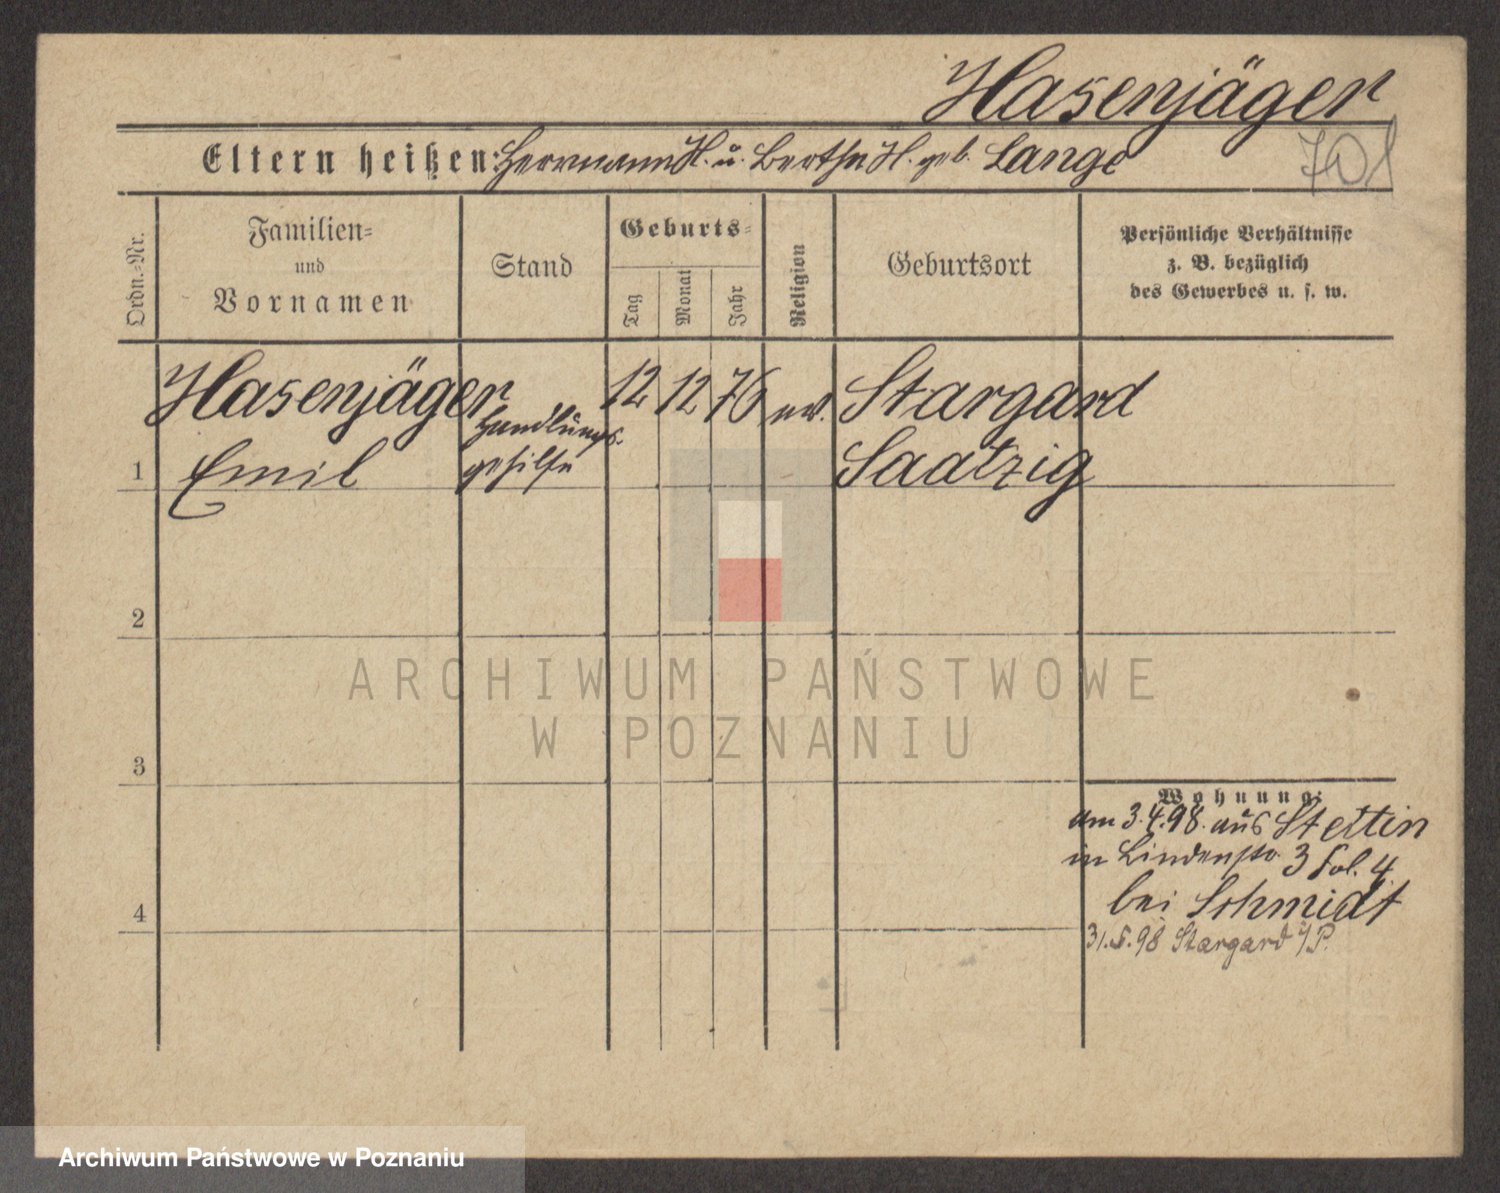 Hasenjäger
Eltern heißen: Herrmann H. u. Bertha H. geb. Lange
701
Ordn.-Nr.
Familien-
und
Vornamen
Stand
Geburts-
Tag
Monat
Jahr
Religion
Geburtsort
Persönliche Verhältnisse
z. B. bezüglich
des Gewerbes u. s. w.
Hasenjäger
Handlungs-
12 12 76 ev. Stargard
1 Emil
gehilfe
Saatzig
2
ARCHIWUM PAŃSTWOWE
W POZNANIU
3
Wohnung:
am 3.4.98. aus Stettin
in Lindenstr. 3 Fol. 4.
bei Schmidt
4
31.5.98 Stargard i/P.
Archiwum Państwowe w Poznaniu